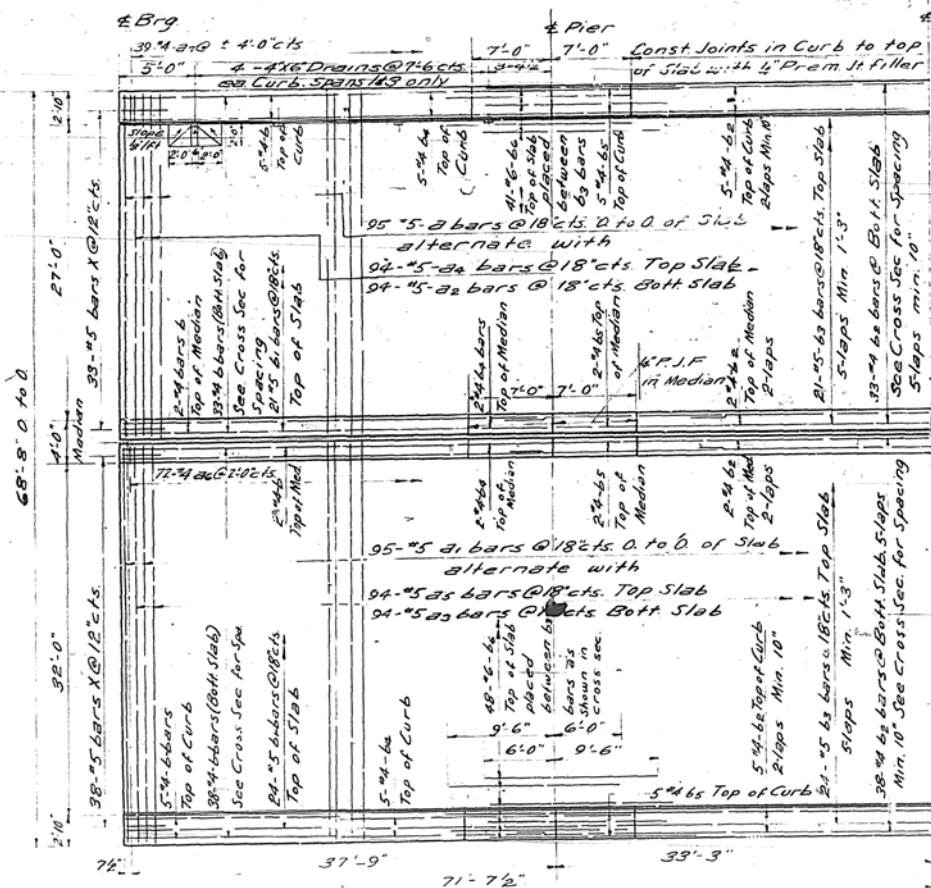 ℄ Brg
℄ Pier
39-#4-a7@ ± 4'-0"cts
7'-0" 7'-0"
Const. Joints in Curb to top
of Slab with ¼" Prem. Jt filler
5'-0" 4-4"x6" Drains @ 7'-6 cts
ea Curb. Spans 1&3 only
2'-10"
Slope
2'-0" 2'-0"
5-#4-b
Top of
Curb
5-#4 b4
Top of
Curb
41-#6-b6
Top of Slab
placed
between
b3 bars
5-#4-b5
Top of Curb
5-#4-b2
Top of Curb
2 laps Min. 10"
95 #5-a bars @ 18"cts. O. to O. of Slab
alternate with
94-#5-a4 bars @ 18"cts. Top Slab
94-#5-a2 bars @ 18"cts. Bott. Slab
33-#5 bars X @ 12"cts.
27'-0"
2-#4 bars b
Top of Median
33-#4 b bars (Bott Slab)
See Cross Sec for
Spacing
21-#5 b1 bars @ 18"cts.
Top of Slab
2-#4 b4 bars
Top of Median
2-#4 b5 Top
of Median
¼" P.J.F
in Median
7'-0" 7'-0"
2-#4-b2
Top of Median
2-laps
21-#5-b3 bars @ 18"cts. Top Slab
5-laps Min 1'-3"
33-#4 b2 bars @ Bott. Slab
See Cross Sec for Spacing
5-laps min. 10"
68'-8" O to O.
4'-0"
Median
72-#4 a6 @ 2'-0"cts.
2-#4-b
Top of Med
2-#4-b4
Top of
Median
2-#4-b5
Top of
Median
2-#4 b2
Top of Med
2-laps
95-#5 a1 bars @ 18"cts. O. to O. of Slab
alternate with
94-#5 a5 bars @ 18"cts. Top Slab
94-#5 a3 bars @ cts. Bott. Slab
38-#5 bars X @ 12"cts.
32'-0"
5-#4-b-bars
Top of Curb
38-#4-b-bars (Bott. Slab)
See Cross Sec for Spa.
24-#5 b1 bars @ 18"cts.
Top of Slab
5-#4-b4
Top of Curb
48-#6-b6
Top of Slab
placed
between b3
bars as
shown in
cross sec.
9'-6" 6'-0"
6'-0" 9'-6"
5-#4-b2 Top of Curb
2-laps Min. 10"
24-#5 b3 bars @ 18"cts. Top Slab
5 laps Min 1'-3"
38-#4 b2 bars @ Bott. Slab. 5-laps
Min. 10" See Cross Sec. for Spacing
5-#4 b5 Top of Curb
2'-10"
7½" 37'-9" 33'-3"
71'-7½"